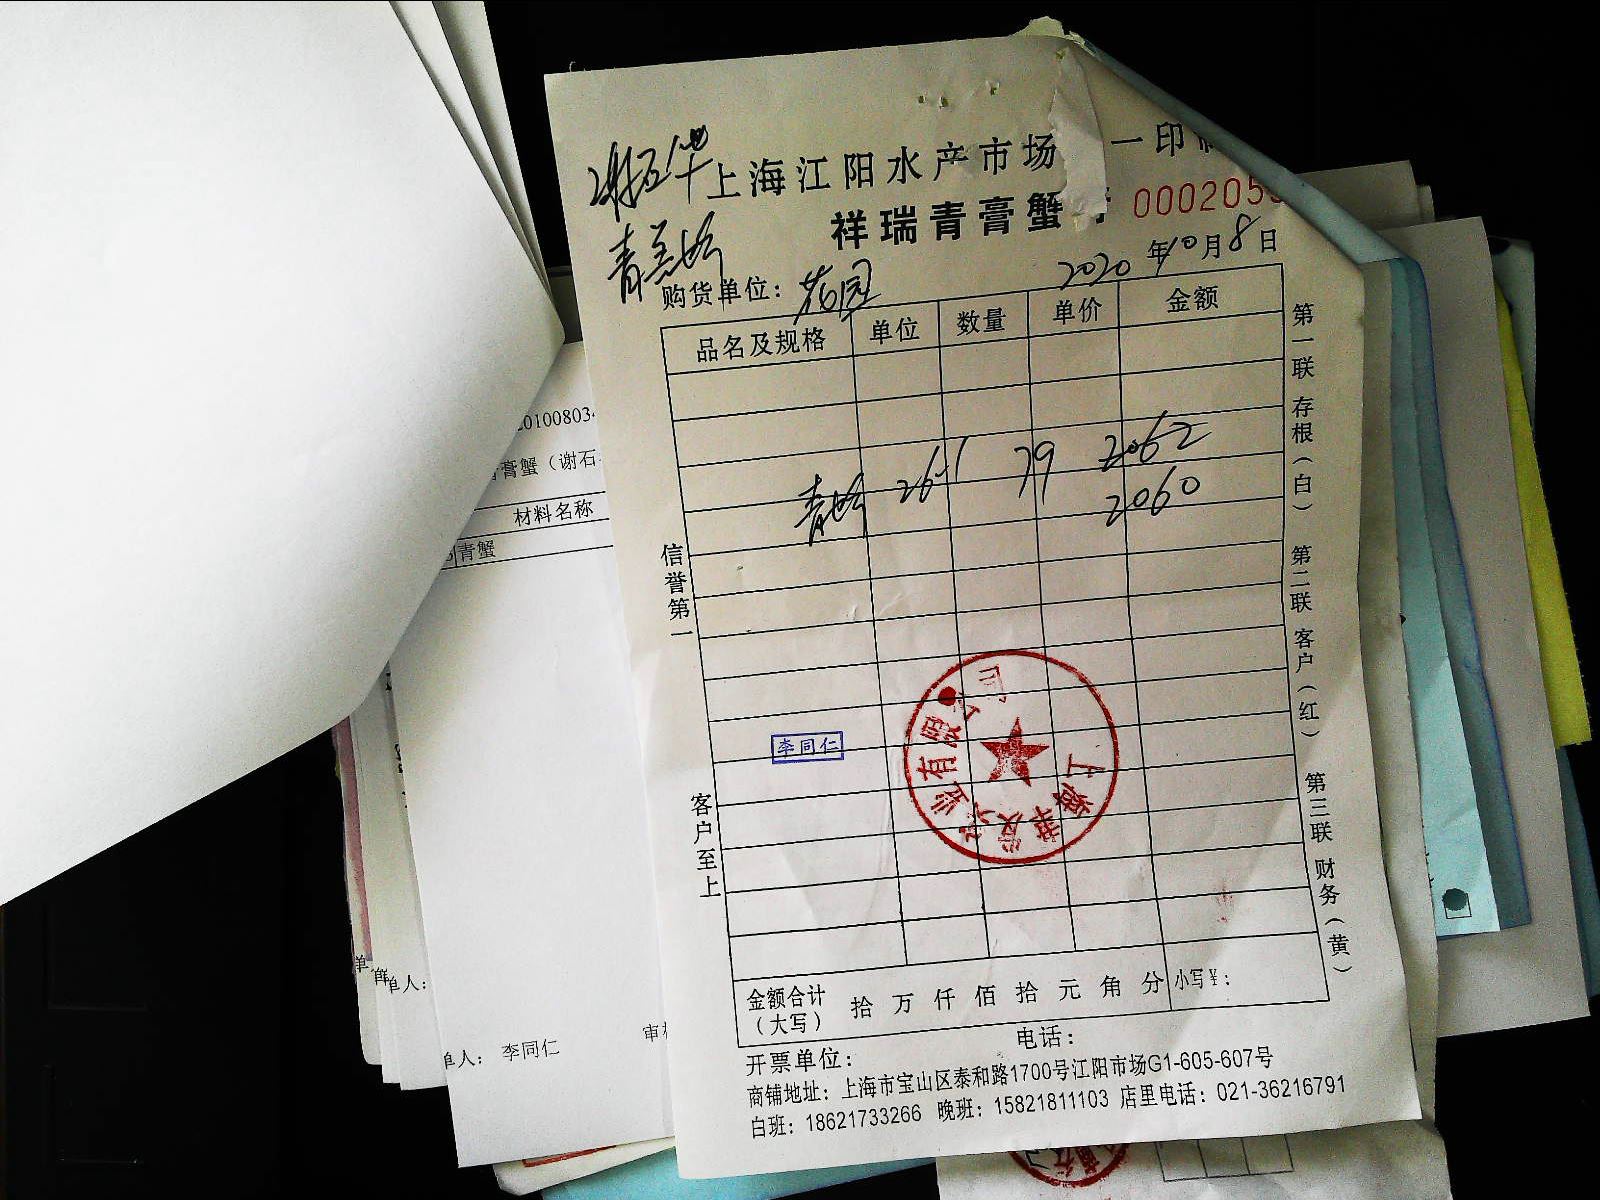 上海江阳水产市场 一印
祥瑞青膏蟹
000205
2020年10月8日
购货单位：花园
品名及规格 单位 数量 单价 金额
青蟹 26.1 79 2062
2060
信誉第一
客户至上
第一联 存根（白） 第二联 客户（红） 第三联 财务（黄）
李同仁
金额合计（大写） 拾 万 仟 佰 拾 元 角 分 小写￥：
开票单位： 电话：
商铺地址：上海市宝山区泰和路1700号江阳市场G1-605-607号
白班：18621733266 晚班：15821811103 店里电话：021-36216791
201008034
膏蟹（谢石
材料名称
青蟹
单人：
单人：李同仁
审